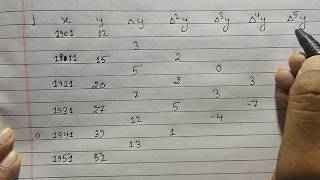 i x y Δy Δ²y Δ³y Δ⁴y Δ⁵y
1901 12
3
19011 15 2
5 0
1921 20 2 3
7 3
1931 27 5 -7
12 -4
0 1941 39 1
13
1951 52